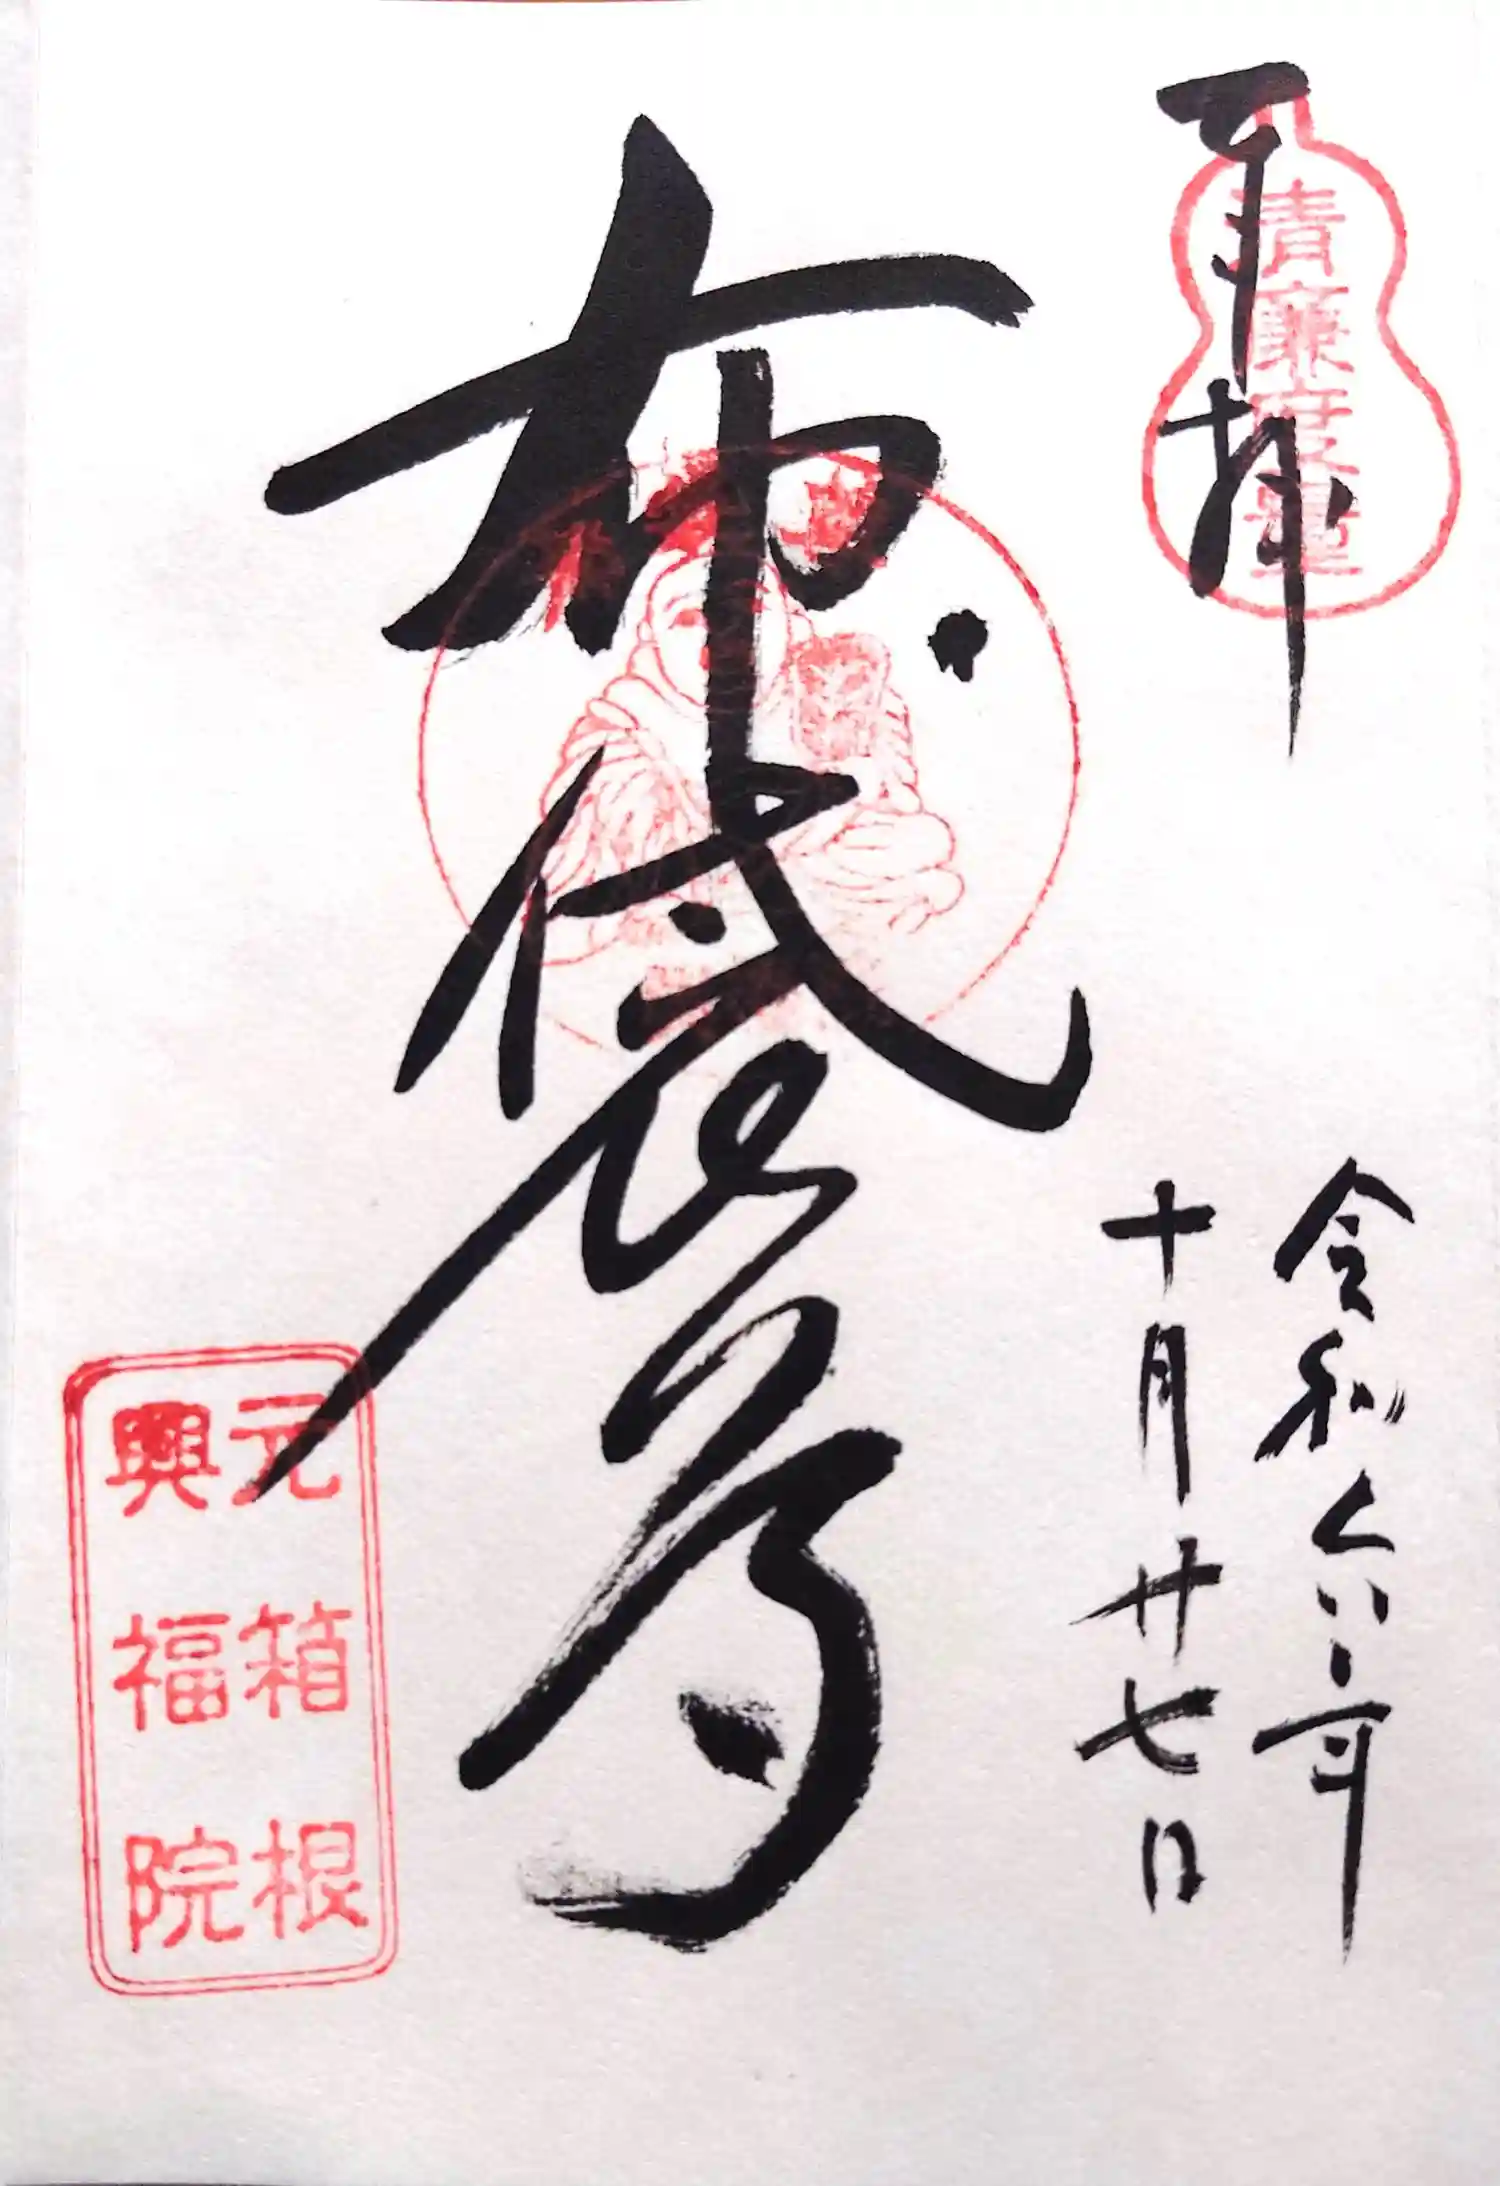 奉拝
清廉度量
令和六年
十月廿七日
布袋尊
元箱根
興福院